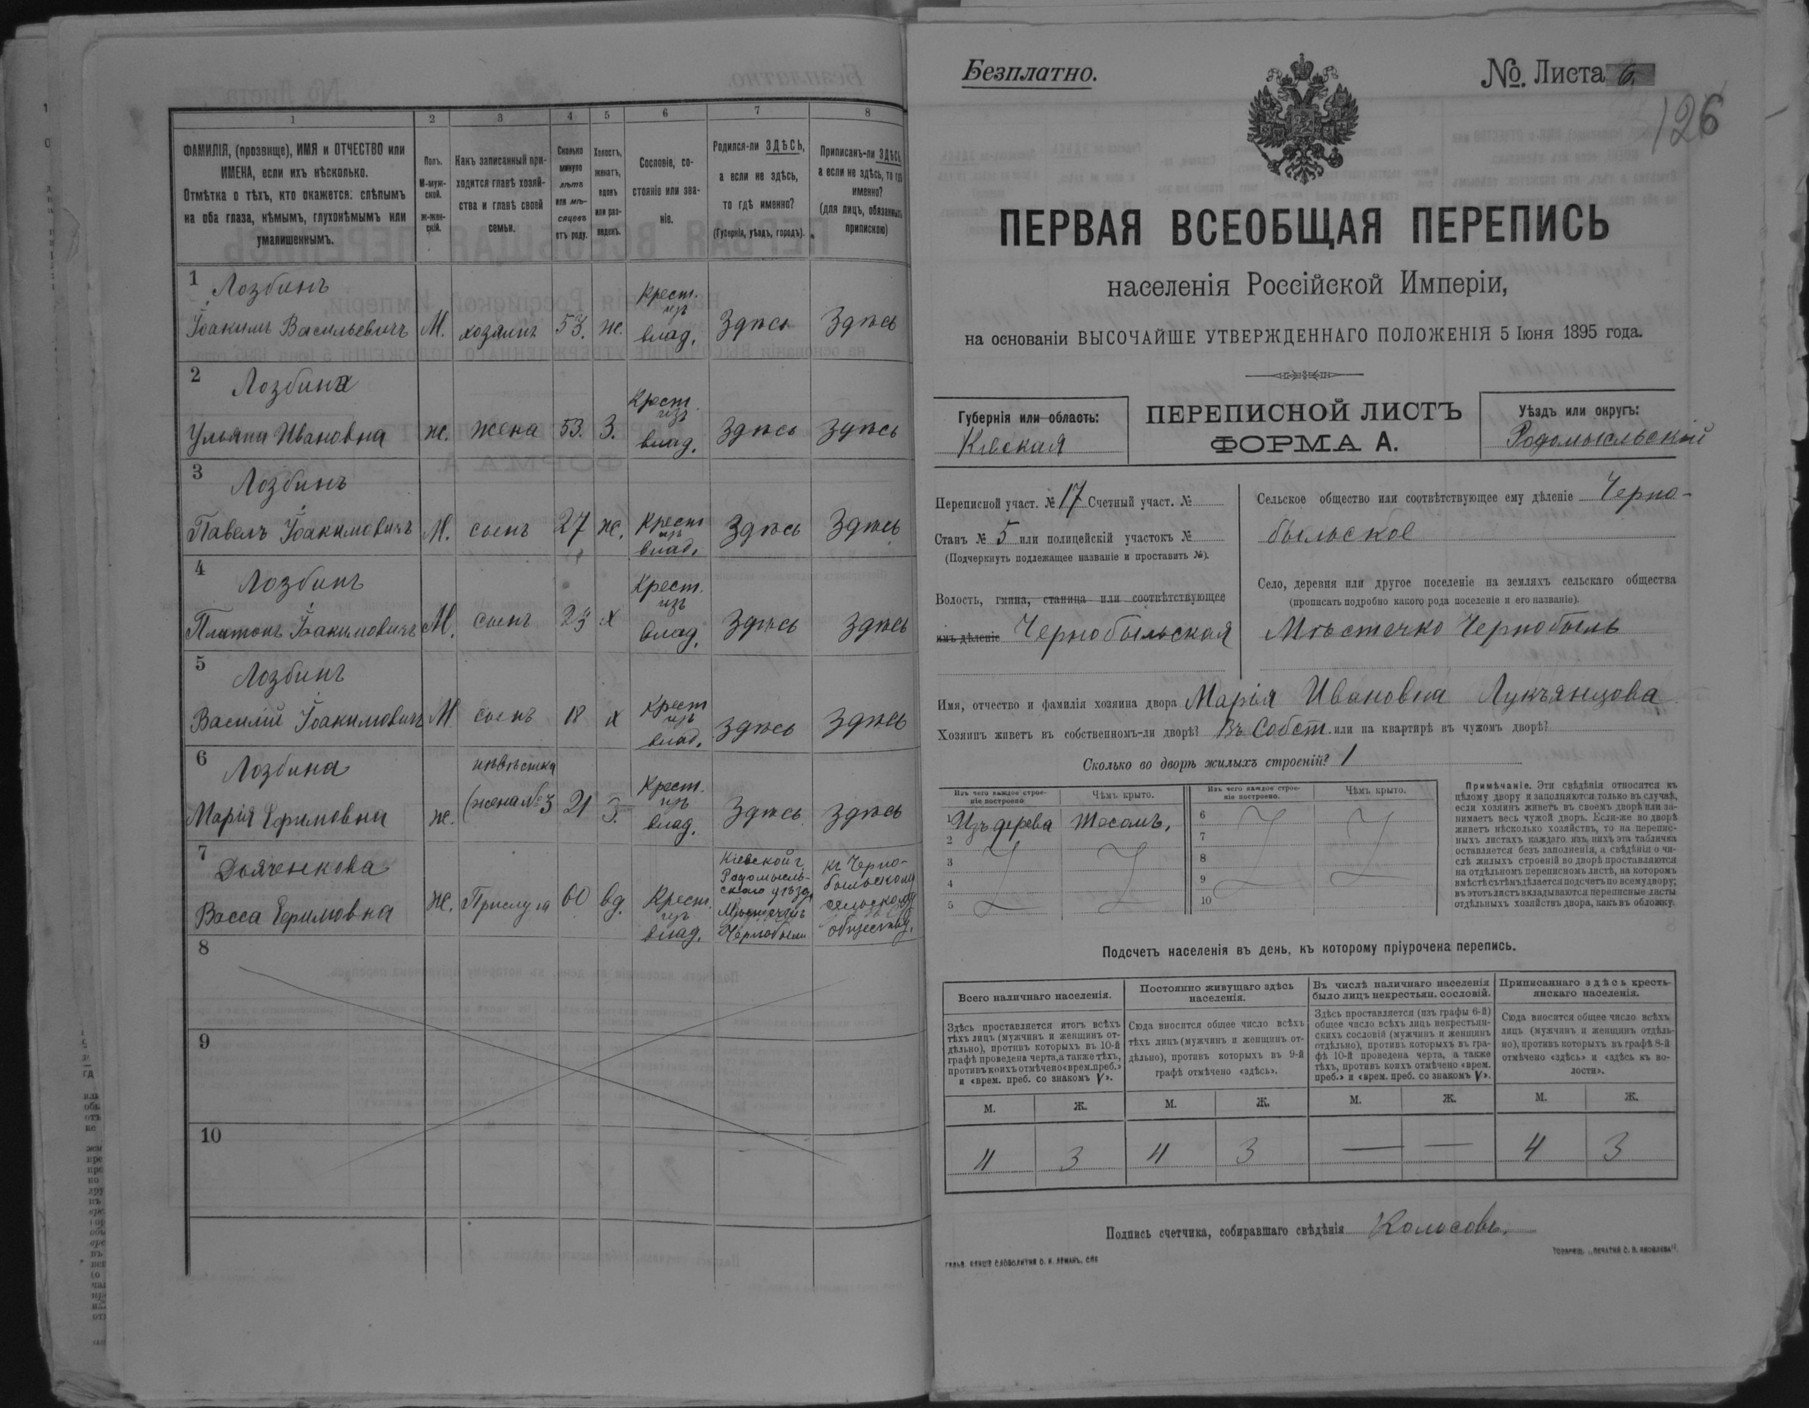 1 2 3 4 5 6 7 8
ФАМИЛІЯ, (прозвище), ИМЯ и ОТЧЕСТВО или ИМЕНА, если ихъ нѣсколько.
Отмѣтка о тѣхъ, кто окажется: слѣпымъ на оба глаза, нѣмымъ, глухонѣмымъ или умалишеннымъ.
Полъ. М-мужской. ж-женскій.
Какъ записанный приходится главѣ хозяйства и главѣ своей семьи.
Сколько минуло лѣтъ или мѣсяцевъ отъ роду.
Холостъ, женатъ, вдовъ или разведенъ.
Сословіе, состояніе или званіе.
Родился-ли ЗДѢСЬ, а если не здѣсь, то гдѣ именно?
(Губернія, уѣздъ, городъ).
Приписанъ-ли ЗДѢСЬ, а если не здѣсь, то гдѣ именно?
(для лицъ, обязанныхъ припискою)
1 Лозбинъ
Іоакимъ Васильевичъ М. хозяинъ 53. ж. Крест. изъ влад. Здѣсь Здѣсь
2 Лозбина
Ульяна Ивановна ж. жена 53. З. Крест. изъ влад. Здѣсь Здѣсь
3 Лозбинъ
Павелъ Іоакимовичъ М. сынъ 27 ж. Крест изъ влад. Здѣсь Здѣсь
4 Лозбинъ
Платонъ Іоакимовичъ М. сынъ 23 х Крест. изъ влад. Здѣсь Здѣсь
5 Лозбинъ
Василій Іоакимовичъ М. сынъ 18 х Крест изъ влад. Здѣсь Здѣсь
6 Лозбина
Марія Ефимовна ж. невѣстка (жена № 3 21 З. Крест. изъ влад. Здѣсь Здѣсь
7 Дьяченкова
Васса Ефимовна ж. Прислуга 60 вд. Крест. изъ влад. Кіевской г. Радомысльскаго уѣзда Мѣстечкѣ Чернобыли къ Чернобыльскому сельскому обществу.
8
9
10
Безплатно.
№. Листа 6
126
ПЕРВАЯ ВСЕОБЩАЯ ПЕРЕПИСЬ
населенія Россійской Имперіи,
на основаніи ВЫСОЧАЙШЕ УТВЕРЖДЕННАГО ПОЛОЖЕНІЯ 5 Іюня 1895 года.
Губернія или область:
Кіевская
ПЕРЕПИСНОЙ ЛИСТЪ
ФОРМА А.
Уѣздъ или округъ:
Радомысльской
Переписной участ. № 17 Счетный участ. №
Станъ № 5 или полицейскій участокъ №
(Подчеркнуть подлежащее названіе и проставить №).
Волость, гмина, станица или соотвѣтствующее
имъ дѣленіе Чернобыльская
Сельское общество или соотвѣтствующее ему дѣленіе Черно-
быльское
Село, деревня или другое поселеніе на земляхъ сельскаго общества
(прописать подробно какого рода поселеніе и его названіе).
Мѣстечко Чернобыль
Имя, отчество и фамилія хозяина двора Марія Ивановна Лукъянцова
Хозяинъ живетъ въ собственномъ-ли дворѣ? Въ Собст. или на квартирѣ въ чужомъ дворѣ?
Сколько во дворѣ жилыхъ строеній? 1
Изъ чего каждое строеніе построено. Чѣмъ крыто. Изъ чего каждое строеніе построено. Чѣмъ крыто.
1 Изъ дерева Тесомъ. 6
2 7
3 8
4 9
5 10
Примѣчаніе. Эти свѣдѣнія относятся къ
цѣлому двору и заполняются только въ случаѣ,
если хозяинъ живетъ въ своемъ дворѣ или за-
нимаетъ весь чужой дворъ. Если-же во дворѣ
живетъ нѣсколько хозяйствъ, то на перепис-
ныхъ листахъ каждаго изъ нихъ эта табличка
оставляется безъ заполненія, а свѣдѣнія о чи-
слѣ жилыхъ строеній во дворѣ проставляются
на отдѣльномъ переписномъ листѣ, на которомъ
вмѣстѣ съ тѣмъ дѣлается подсчетъ по всему двору;
въ этотъ листъ вкладываются переписные листы
отдѣльныхъ хозяйствъ двора, какъ въ обложку.
Подсчетъ населенія въ день, къ которому пріурочена перепись.
Всего наличнаго населенія.
Постоянно живущаго здѣсь населенія.
Въ числѣ наличнаго населенія было лицъ некрестьян. сословій.
Приписаннаго здѣсь крестьянскаго населенія.
Здѣсь проставляется итогъ всѣхъ
тѣхъ лицъ (мужчинъ и женщинъ от-
дѣльно), противъ которыхъ въ 10-й
графѣ проведена черта, а также тѣхъ,
противъ коихъ отмѣчено «врем. преб.»
и «врем. преб. со знакомъ V».
Сюда вносится общее число всѣхъ
тѣхъ лицъ (мужчинъ и женщинъ от-
дѣльно), противъ которыхъ въ 9-й
графѣ отмѣчено «здѣсь».
Здѣсь проставляется (изъ графы 6-й)
общее число всѣхъ лицъ некрестьян-
скихъ сословій (мужчинъ и женщинъ
отдѣльно), противъ которыхъ въ гра-
фѣ 10-й проведена черта, а также
тѣхъ, противъ коихъ отмѣчено «врем.
преб.» и «врем. преб. со знакомъ V».
Сюда вносится общее число всѣхъ
лицъ (мужчинъ и женщинъ отдѣль-
но), противъ которыхъ въ графѣ 8-й
отмѣчено «здѣсь» и «здѣсь къ во-
лости».
М. Ж. М. Ж. М. Ж. М. Ж.
4 3 4 3 — — 4 3
Подпись счетчика, собиравшаго свѣдѣнія Колосовъ.